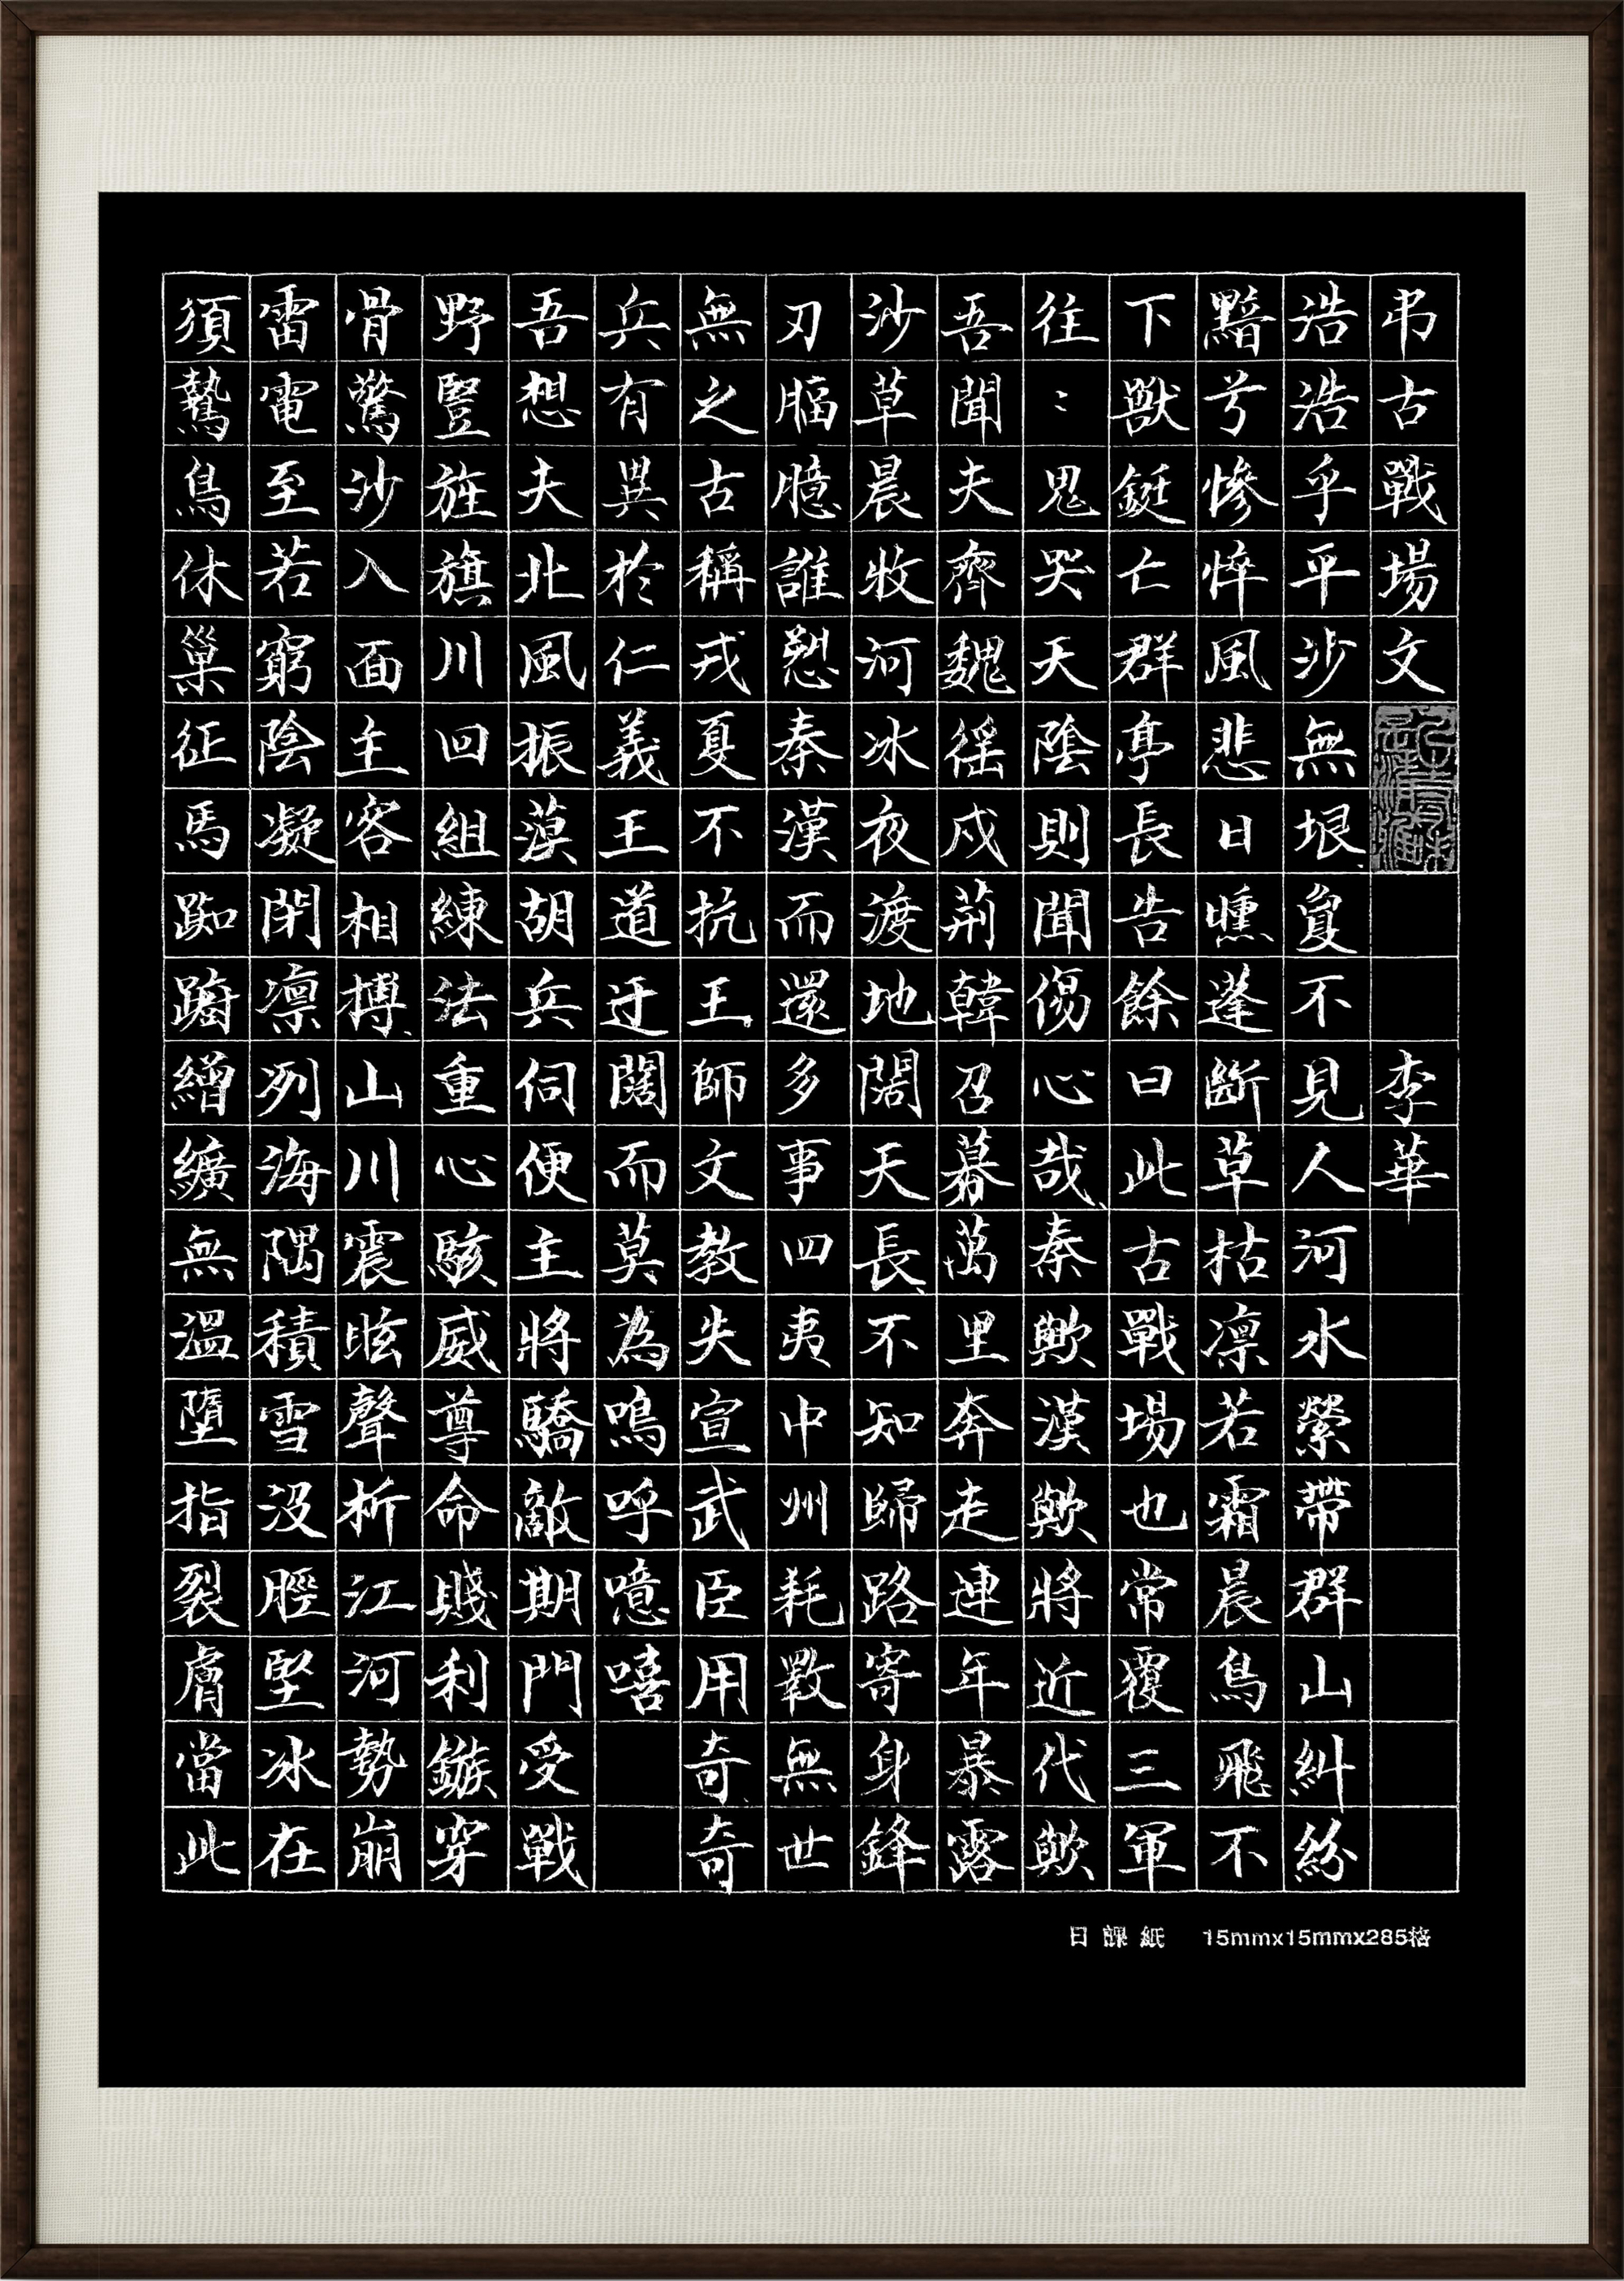 弔古戰場文 李華
浩浩乎平沙無垠敻不見人河水縈帶群山糾紛
黯兮慘悴風悲日曛蓬斷草枯凛若霜晨鳥飛不
下獸鋌亡群亭長告餘曰此古戰場也常覆三軍
往〻鬼哭天陰則聞傷心哉秦歟漢歟將近代歟
吾聞夫齊魏徭戍荊韓召募萬里奔走連年暴露
沙草晨收河冰夜渡地闊天長不知歸路寄身鋒
刃腷臆誰愬秦漢而還多事四夷中州耗斁無世
無之古稱戎夏不抗王師文教失宣武臣用奇奇
兵有異於仁義王道迂闊而莫為嗚呼噫嘻
吾想夫北風振漠胡兵伺便主將驕敵期門受戰
野豎旌旗川回組練法重心駭威尊命賤利鏃穿
骨驚沙入面主客相搏山川震眩聲析江河勢崩
雷電至若窮陰凝閉凛列海隅積雪沒脛堅冰在
須鷙鳥休巢征馬踟躕繒纊無溫墮指裂膚當此
日課紙 15mmx15mmx285格